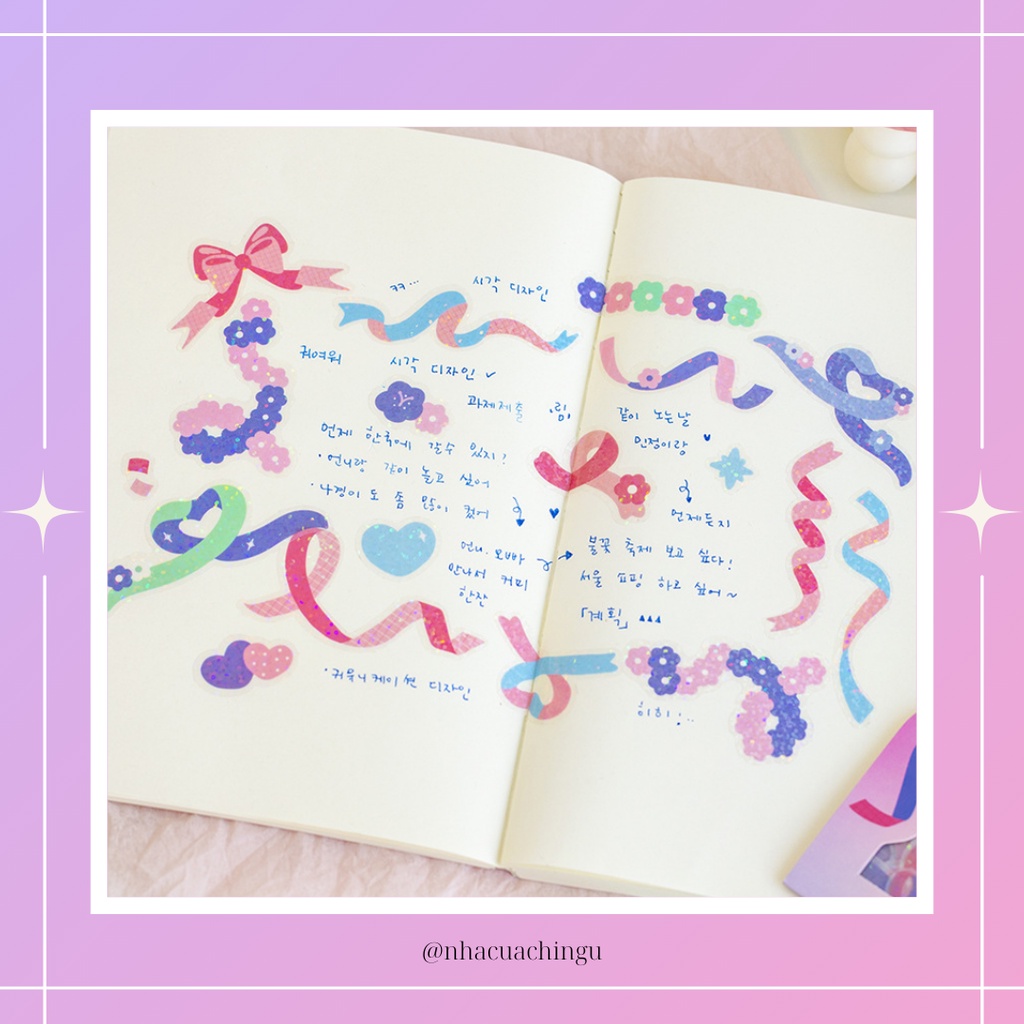 ㅋㅋ...
시각 디자인
귀여워
시각 디자인 ✓
과제제출
언제 한국에 갈수 있지?
· 언니랑 같이 놀고 싶어
· 나경이도 좀 많이 컸어
언니, 오빠
만나서 커피
한잔
· 커뮤니케이션 디자인
같이 노는날
민정이랑
언제든지
불꽃 축제 보고 싶다!
서울 쇼핑 하고 싶어~
「계획」
히히!..
@nhacuachingu